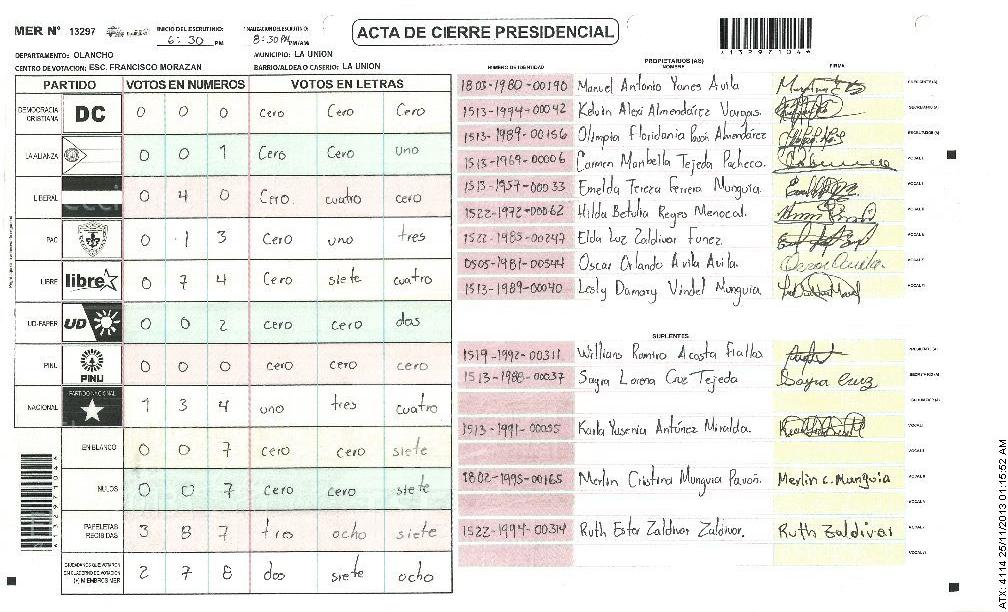 MER Nº 13297 INICIO DEL ESCRUTINIO: 6:30 PM FINALIZACION DEL ESCRUTINIO: 8:30 PM PM/AM ACTA DE CIERRE PRESIDENCIAL
13297104
DEPARTAMENTO: OLANCHO MUNICIPIO: LA UNION
CENTRO DE VOTACION: ESC. FRANCISCO MORAZAN BARRIO/ALDEA O CASERIO: LA UNION
PARTIDO VOTOS EN NUMEROS VOTOS EN LETRAS
DEMOCRACIA CRISTIANA DC 0 0 0 Cero Cero Cero
LA ALIANZA 0 0 1 Cero Cero uno
LIBERAL 0 4 0 Cero cuatro cero
PAC 0 1 3 Cero uno tres
LIBRE libre 0 7 4 Cero siete cuatro
UD-FAPER UD 0 0 2 cero cero dos
PINU PINU 0 0 0 cero cero cero
NACIONAL PARTIDO NACIONAL 1 3 4 uno tres cuatro
EN BLANCO 0 0 7 cero cero siete
NULOS 0 0 7 cero cero siete
PAPELETAS RECIBIDAS 3 8 7 tres ocho siete
CIUDADANOS QUE VOTARON EN CUADERNO DE VOTACION (+) MIEMBROS MER 2 7 8 dos siete ocho
PROPIETARIOS (AS)
NUMERO DE IDENTIDAD NOMBRE FIRMA
1803-1980-00190 Manuel Antonio Yanes Avila
1513-1994-00042 Kelvin Alexi Almendárez Vargas.
1513-1989-00156 Olimpia Floridania Pavón Almendárez
1513-1969-00006 Carmen Maribella Tejeda Pacheco.
1513-1957-00033 Emelda Tereza Ferrera Munguia.
1522-1972-00062 Hilda Betulia Reyes Menocal.
1522-1985-00247 Elda Luz Zaldivar Funez.
0505-1981-00544 Oscar Orlando Avila Avila. Oscar Avila.
1513-1989-00040 Lesly Damary Vindel Munguia
SUPLENTES
1519-1992-00311 Willians Ramiro Acosta Fiallos
1513-1988-00037 Sayra Lorena Cruz Tejeda Sayra Cruz
1513-1991-00055 Karla Yusenia Antúnez Miralda.
1802-1995-00165 Merlin Cristina Munguia Pavón. Merlin C. Munguia
1522-1994-00314 Ruth Ester Zaldivar Zaldivar. Ruth Zaldivar
ATX: 4114 25/11/2013 01:15:52 AM